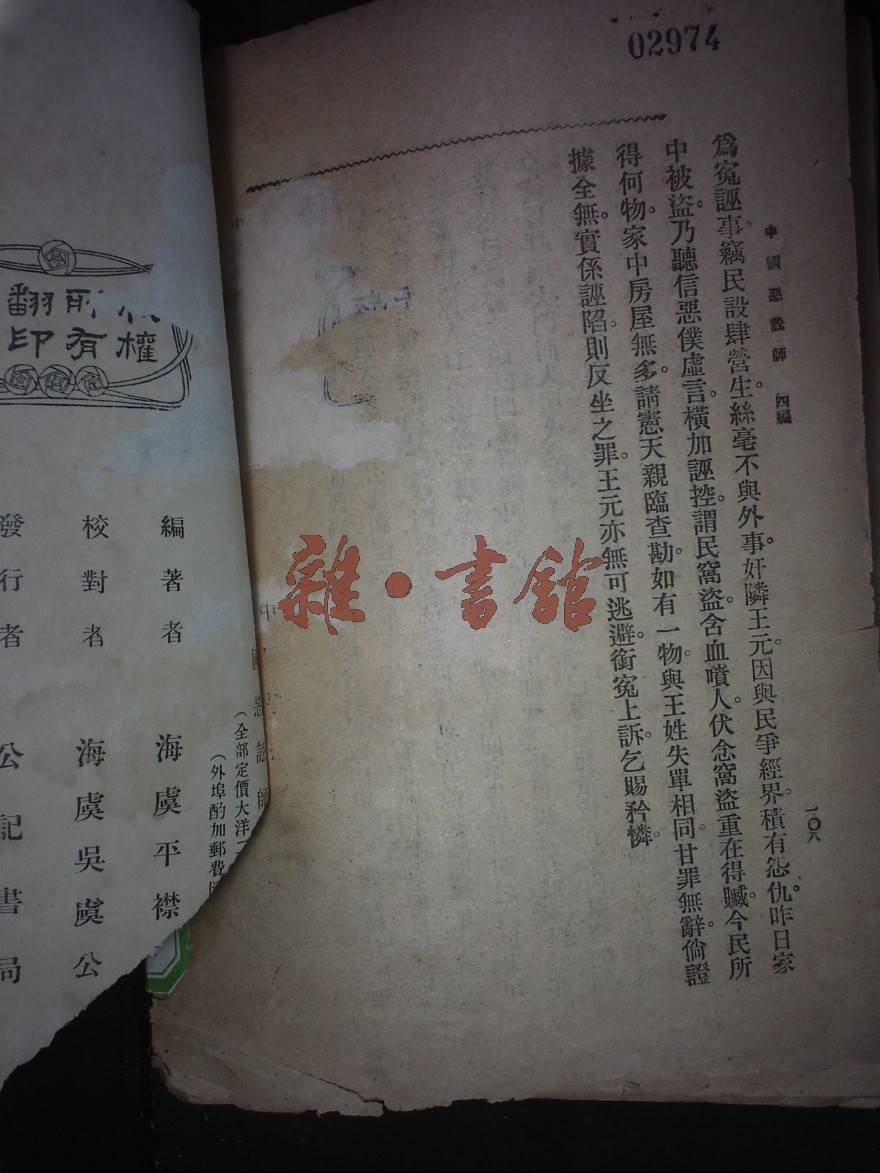 02974
中國惡訟師 四編
一〇八
爲寃誣事。竊民設肆營生。絲毫不與外事。奸隣王元。因與民爭經界。積有怨仇。昨日家
中被盜。乃聽信惡僕虛言。橫加誣控。謂民窩盜。含血噴人。伏念窩盜重在得贓。今民所
得何物。家中房屋無多。請憲天親臨查勘。如有一物與王姓失單相同。甘罪無辭。倘證
據全無。實係誣陷。則反坐之罪。王元亦無可逃避。銜寃上訴。乞賜矜憐。
雜·書館
有權
翻
印
(全部定價大洋
(外埠酌加郵費
編著者 海虞平襟
校對者 海虞吳虞公
發行者 公記書局